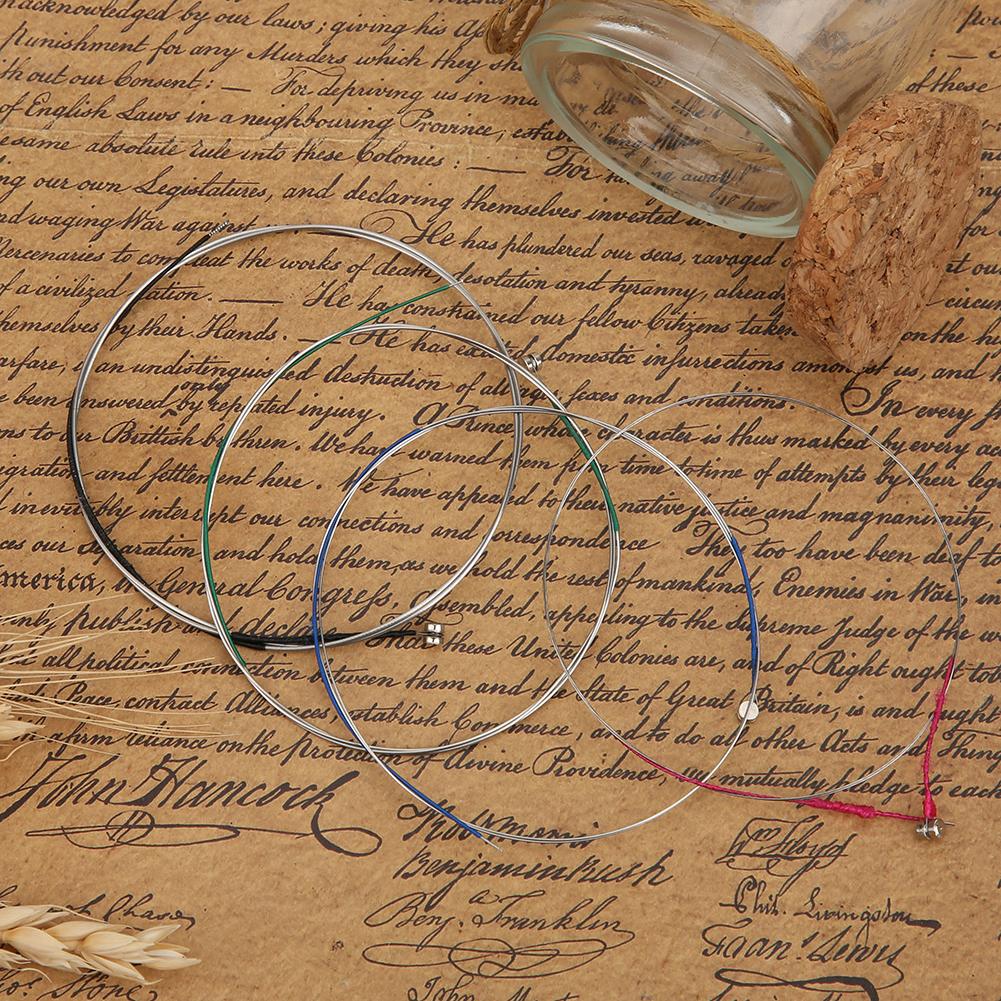 acknowledged by our laws; giving his
Punishment for any Murders which they sh
ithout our Consent: — For depriving us in ma
of these
of English Laws in a neighbouring Province, estab
same absolute rule into these Colonies: — For
ng away
ng our own Legistatures, and declaring themselves invested
nd waging War against He has plundered our seas, ravaged
ercenaries to compleat the works of death desolation and tyranny, already circum
of a civilized nation. — He has constrained our fellow Citizens taken on the h
hemselves by their Hands. — He has excited domestic insurrections amongst us, and h
arfare, is an undistinguished destruction of all ages, sexes and conditions. In every
only
been answered by repeated injury. A Prince whose character is thus marked by every ac
ns to our Brittish brethren. We have warned them from time to time of attempts by their leg
igration and fettlement here. We have appealed to their native justice and magnanimity,
d inevitably interrupt our connections and correspondence They too have been deaf to
ces our Separation, and hold them, as we hold the rest of mankind, Enemies in War, in
merica, in General Congrefs, Assembled, appealing to the Supreme Judge of the wo
nly, publish and declare, That these United Colonies are, and of Right ought to
all political connection between them and the State of Great Britain, is and ought
Peace, contract Alliances, establish Commerce, and to do all other Acts and Thing
affirm reliance on the Protection of Divine Providence, we mutually pledge to each
John Hancock
Robt Morris
Benjamin Rush
Benj. Franklin
Wm Floyd
Phil. Livingston
Fran' Lewis
Chase
Stone
John Mor